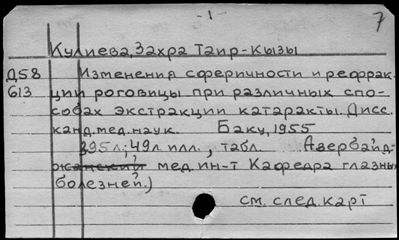 -1-
7
Кулиева, Захра Таир-Кызы
Д58 Изменения сферичности и рефрак-
613 ции роговицы при различных спо-
собах экстракции катаракты. Дисс.
канд. мед. наук. Баку, 1955
395л; 49л илл., табл. Азербайд-
жанский мед. ин-т Кафедра глазных
болезней.)
см. след. карт